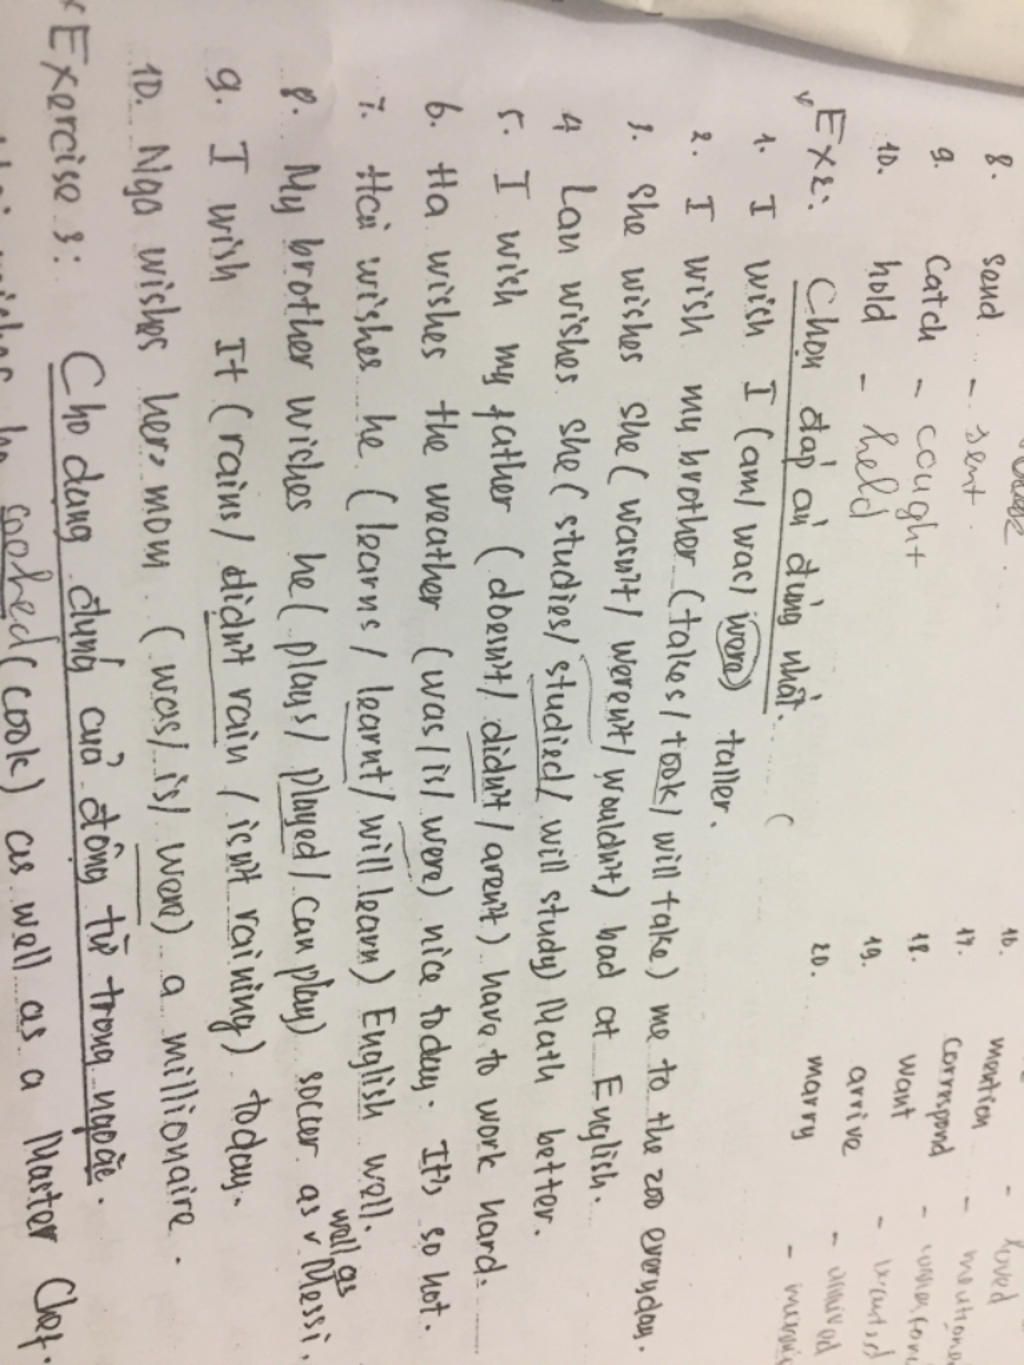 8. send - sent.
9. catch - cought
10. hold - held
16. mention - loved
17. corrnspond - mentione
18. want
19. arrive - wanted
20. marry - arrived
Ex2: Chọn đáp án đúng nhất.
1. I wish I (am/ was/ were) taller.
2. I wish my brother (takes/ took/ will take) me to the zoo everyday.
3. She wishes she (wasn't/ weren't/ wouldn't) bad at English.
4 Lan wishes she (studies/ studied/ will study) Math better.
5. I wish my father (doesn't/ didn't/ aren't) have to work hard.
6. Ha wishes the weather (was/ is/ were) nice today. It's so hot.
7. Hải wishes he (learns/ learnt/ will learn) English well.
8. My brother wishes he (plays/ played/ can play) soccer as well as Messi.
9. I wish It (rains/ didn't rain / isn't raining) today.
10. Nga wishes her mom (was/ is/ were) a millionaire.
Exercise 3: Cho dạng đúng của động từ trong ngoặc.
wishes he coohed (cook) as well as a Master Chef.